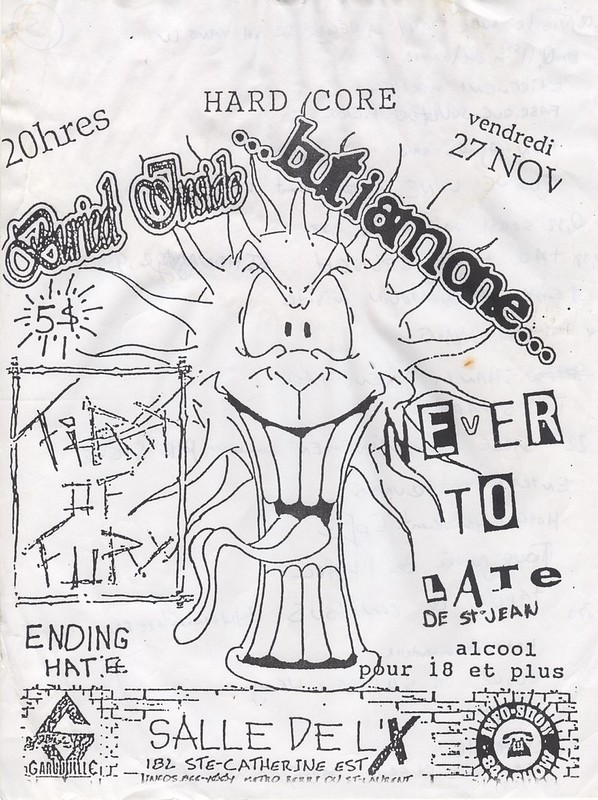 HARD CORE
20hres
vendredi
27 NOV
Buried Inside
...but i am one...
5$
FIRM
OF
FURY
NEVER
TO
LATE
DE ST-JEAN
ENDING
HATE
alcool
pour 18 et plus
SALLE DE L'X
182 STE-CATHERINE EST
METRO BERRI OU ST-LAURENT
INFO-SHOW